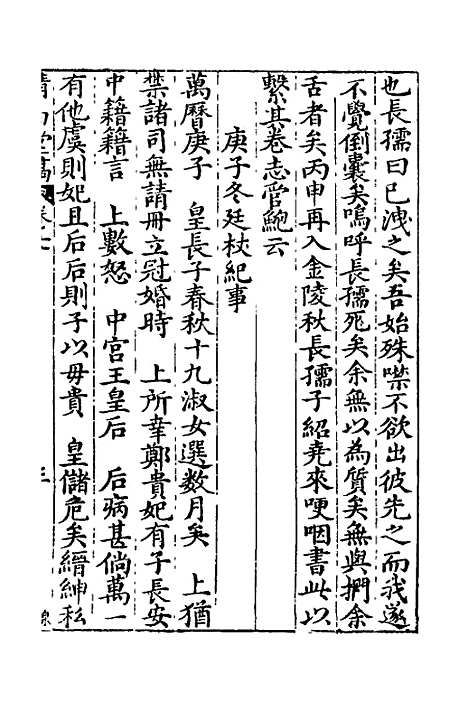 也長孺曰已洩之矣吾始殊噤不欲出彼先之而我遂
不覺倒囊矣嗚呼長孺死矣余無以為質矣無與捫余
舌者矣丙申再入金陵秋長孺子紹堯來哽咽書此以
繫其卷志管鮑云
庚子冬廷杖紀事
萬曆庚子 皇長子春秋十九淑女選數月矣 上猶
禁諸司無請冊立冠婚時 上所幸鄭貴妃有子長安
中籍籍言 上數怒 中宮王皇后 后病甚倘萬一
有他虞則妃且后后則子以母貴 皇儲危矣縉紳私
三